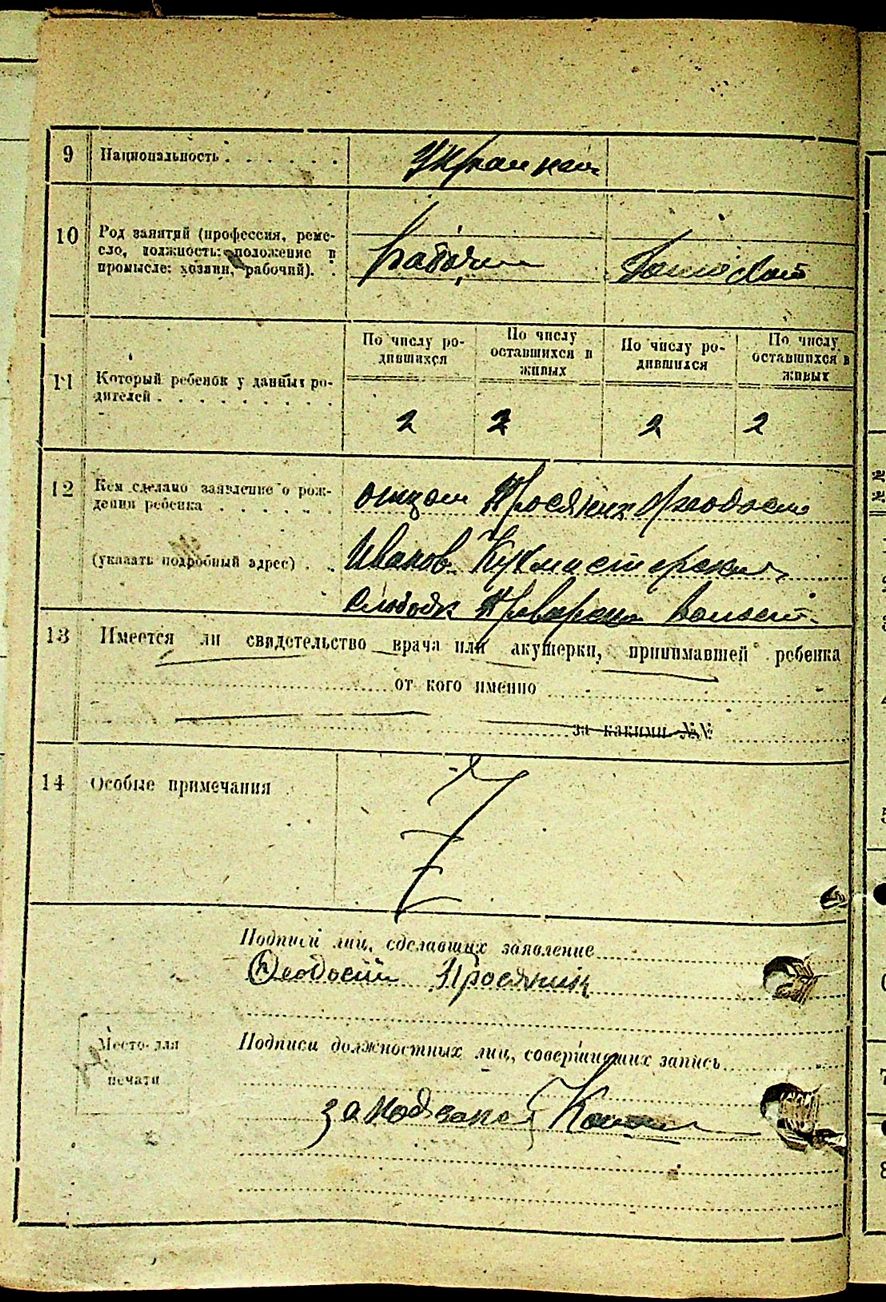 9 Национальность . . . . . .
10 Род занятий (профессия, реме-
сло, должность: положение в
промысле: хозяин, рабочий). .
рабочий
11 Который ребенок у данных ро-
дителей . . . . . . . .
По числу ро-
дившихся
По числу
оставшихся в
живых
По числу ро-
дившихся
По числу
оставшихся в
живых
2 2 2 2
12 Кем сделано заявление о рож-
дении ребенка . . . . . .
(указать подробный адрес) . .
отцом Просяник Феодосий
Иванов. Кухмистерская
слободк
13 Имеется ли свидетельство врача или акушерки, принимавшей ребенка
от кого именно
за какими №№
14 Особые примечания
Z
Подписи лиц, сделавших заявление
Феодосий Просяник
Место для
печати
Подписи должностных лиц, совершивших запись